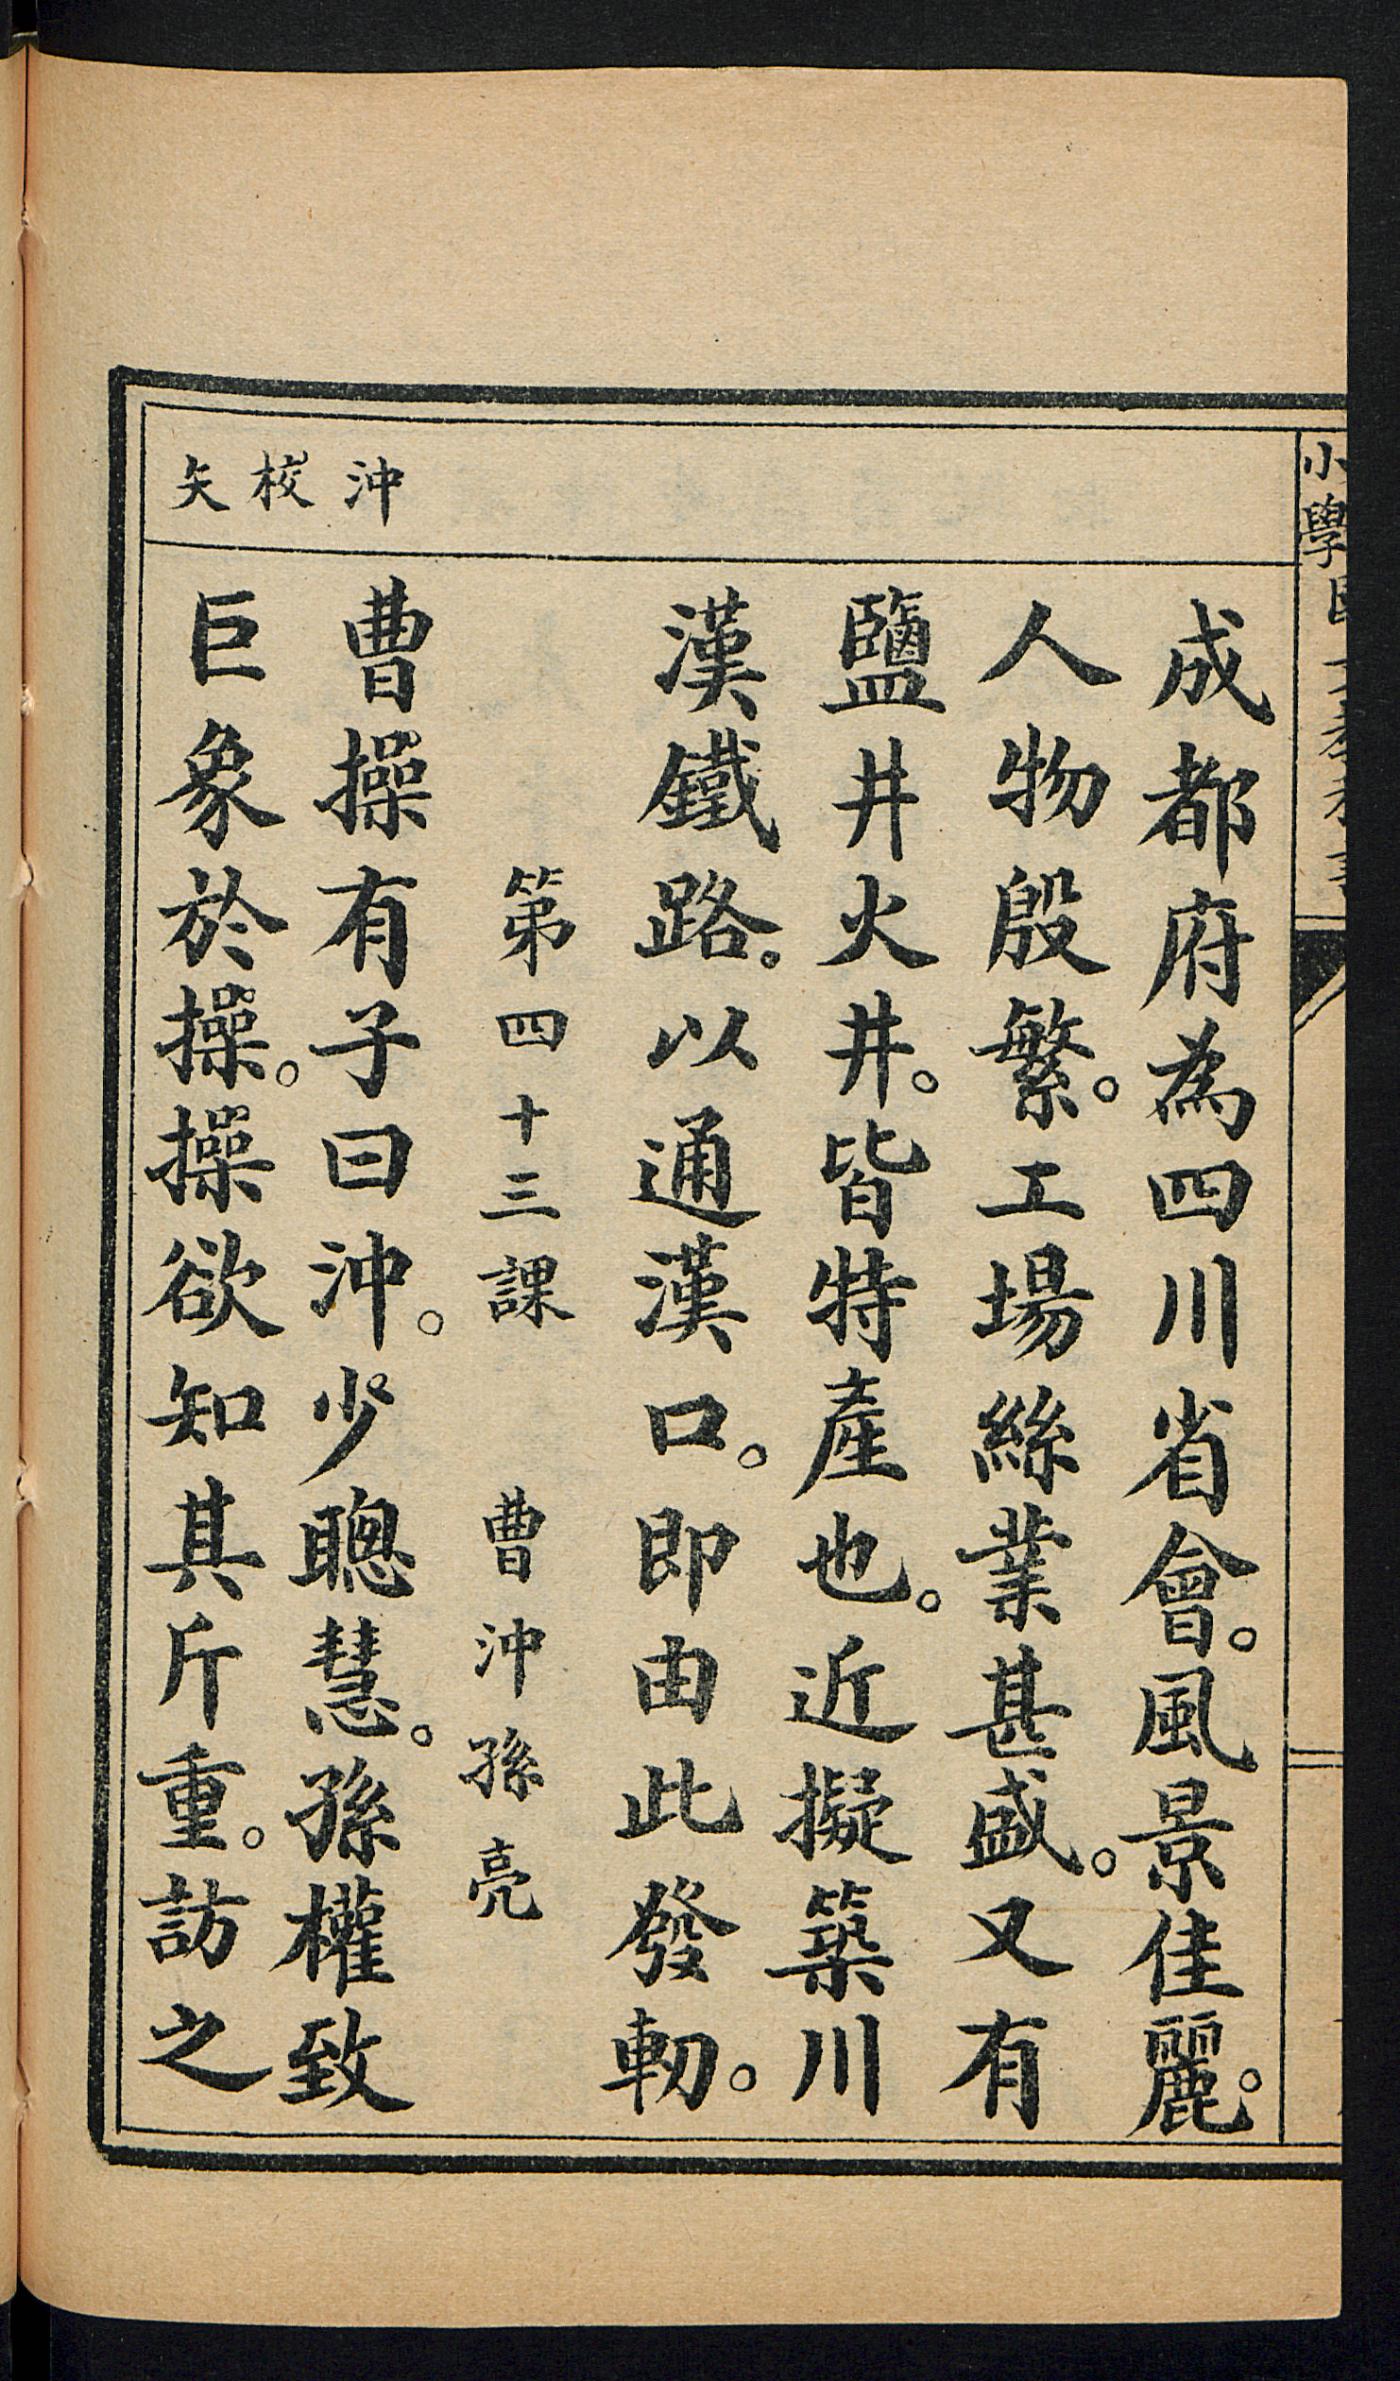 小學
成都府為四川省會。風景佳麗。
人物殷繁。工場絲業甚盛。又有
鹽井火井。皆特產也。近擬築川
漢鐵路。以通漢口。即由此發軔。
第四十三課　曹沖孫亮
沖校矢
曹操有子曰沖。少聰慧。孫權致
巨象於操。操欲知其斤重。訪之